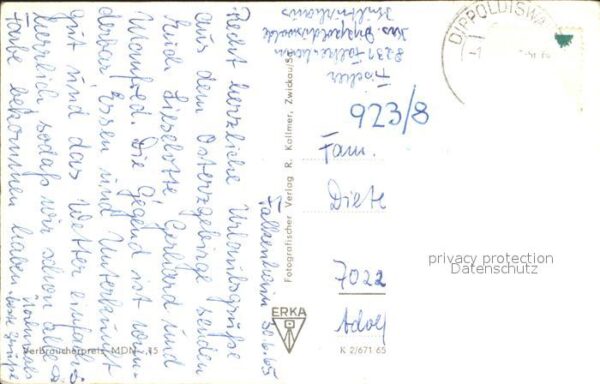 Falkenhain 30.6.65
Recht herzliche Urlaubsgrüße
aus dem Osterzgebirge senden
Euch Lieselotte Gerhard und
Manfred. Die Gegend ist wun-
derbar Essen und Unterkunft
gut und das Wetter einfach
herrlich sodaß wir schon alle
Farbe bekommen haben.
Nochmals
beste Grüße
Fischer
8231 Falkenhain
Krs Dippoldiswalde
DIPPOLDISWA
923/8
Fam.
Diete
7022
Adolf
privacy protection
Datenschutz
Fotografischer Verlag R. Kallmer, Zwickau/Sa.
ERKA
K 2/671 65
Verbraucherpreis MDN -,15